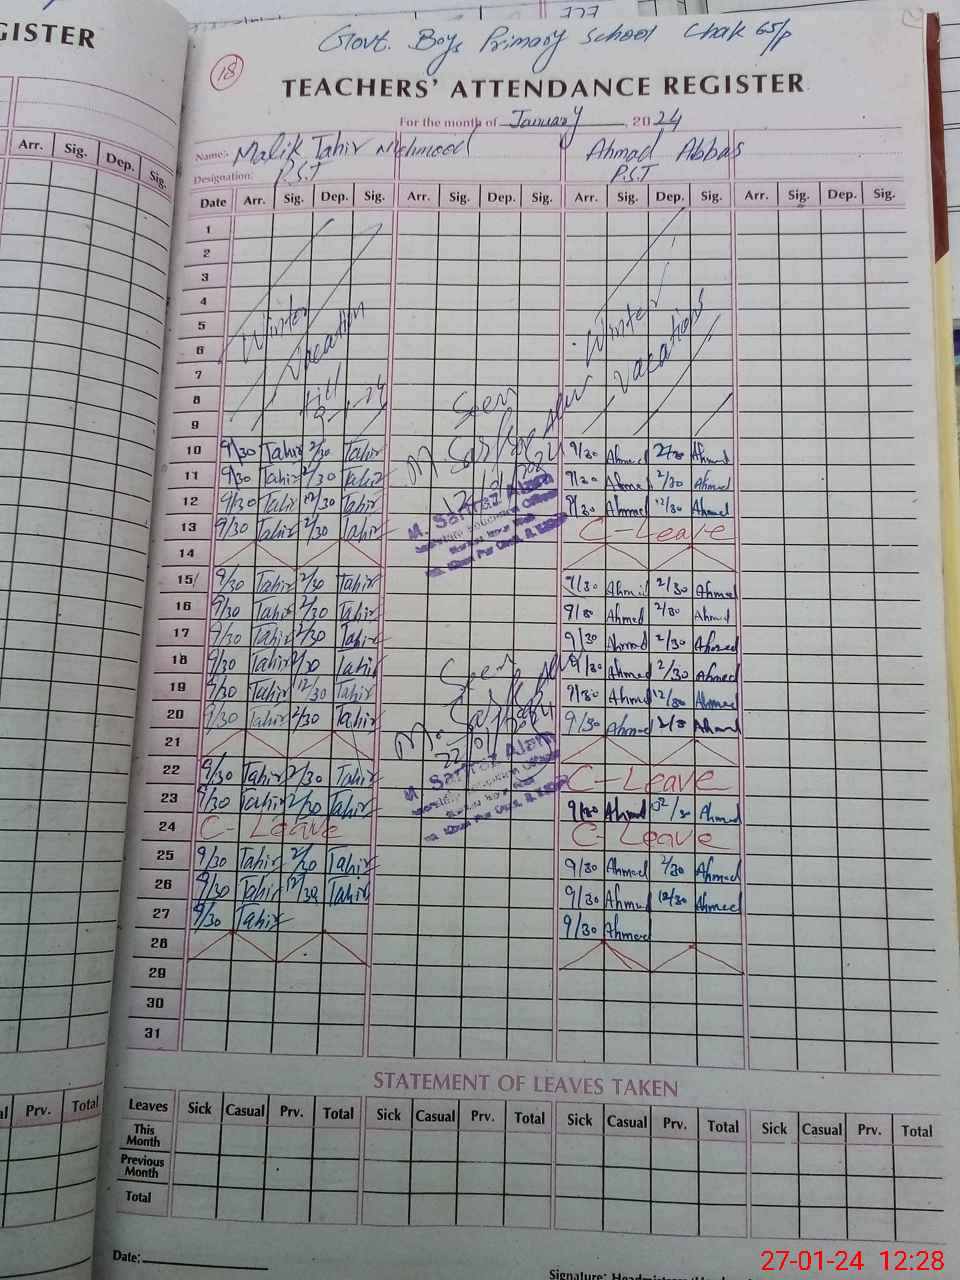 GISTER
Govt. Boys Primary School Chak 65/P
18
TEACHERS' ATTENDANCE REGISTER
For the month of January, 2024
Name:- Malik Tahir Mehmood Ahmad Abbas
Designation: P.S.T P.S.T
Arr. Sig. Dep. Sig.
Date Arr. Sig. Dep. Sig. Arr. Sig. Dep. Sig. Arr. Sig. Dep. Sig. Arr. Sig. Dep. Sig.
1
2
3
4
5 Winter Winter
6 Vacation vacations
7
8 till Seen
9 9-1-24
10 9/30 Tahir 2/30 Tahir 9/30 Ahmed 2/30 Ahmed
11 9/30 Tahir 2/30 Tahir 9/30 Ahmed 2/30 Ahmed
12 9/30 Tahir 12/30 Tahir 9/30 Ahmed 12/30 Ahmed
13 9/30 Tahir 2/30 Tahir M. Sarfraz Alam C-Leave
14
15 9/30 Tahir 2/30 Tahir 9/30 Ahmed 2/30 Ahmed
16 9/30 Tahir 2/30 Tahir 9/30 Ahmed 2/30 Ahmed
17 9/30 Tahir 2/30 Tahir 9/30 Ahmed 2/30 Ahmed
18 9/30 Tahir 2/30 Tahir Seen 9/30 Ahmed 2/30 Ahmed
19 9/30 Tahir 12/30 Tahir 9/30 Ahmed 12/30 Ahmed
20 9/30 Tahir 2/30 Tahir 9/30 Ahmed 2/30 Ahmed
21 22/01/2024
22 9/30 Tahir 2/30 Tahir M. Sarfraz Alam C-Leave
23 9/30 Tahir 2/30 Tahir 9/30 Ahmed 02/30 Ahmed
24 C-Leave C-Leave
25 9/30 Tahir 2/30 Tahir 9/30 Ahmed 2/30 Ahmed
26 9/30 Tahir 12/30 Tahir 9/30 Ahmed 12/30 Ahmed
27 9/30 Tahir 9/30 Ahmed
28
29
30
31
STATEMENT OF LEAVES TAKEN
Prv. Total
Leaves Sick Casual Prv. Total Sick Casual Prv. Total Sick Casual Prv. Total Sick Casual Prv. Total
This Month
Previous Month
Total
Date:
Signature: Headmistress
27-01-24 12:28